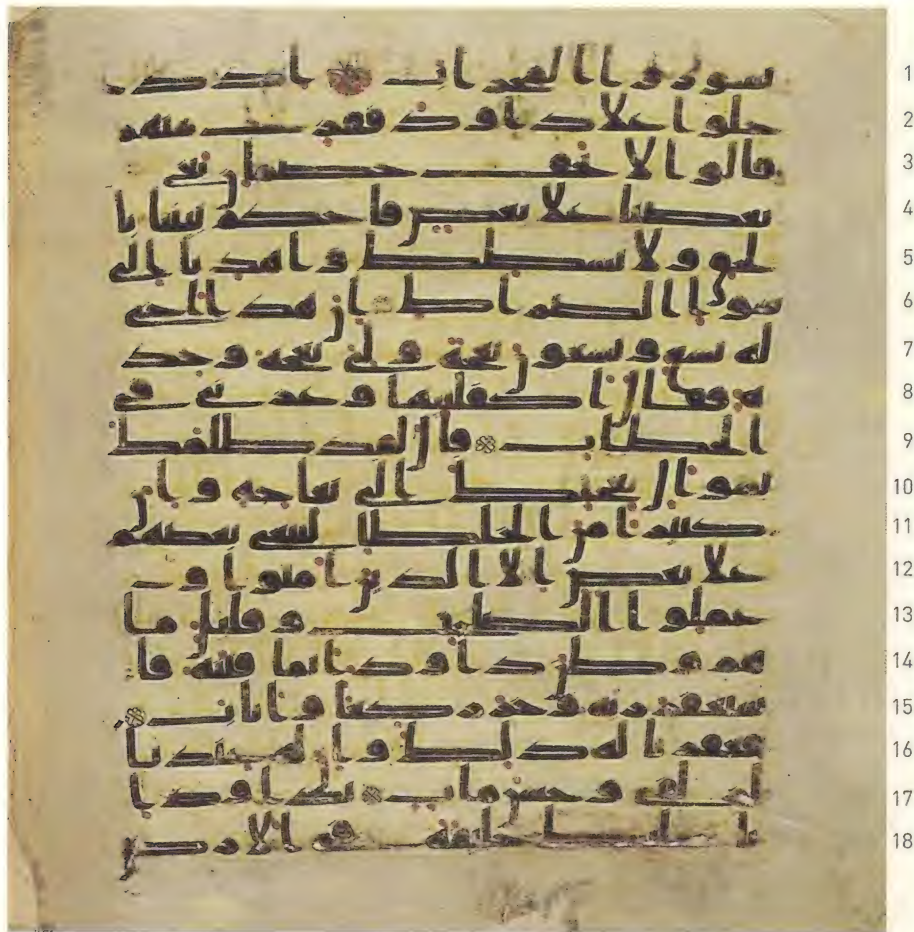 تسوروا المحراب اذ د 1
خلوا على داود ففزع منهم 2
قالوا لا تخف خصمان بغى 3
بعضنا على بعض فاحكم بيننا با 4
لحق ولا تشطط واهدنا الى 5
سوا الصرط ان هذا اخى 6
له تسع وتسعون نعجة ولى نعجة وحد 7
ة فقال اكفلنيها وعزنى فى 8
الخطاب قال لقد ظلمك 9
بسوال نعجتك الى نعاجه وان 10
كثيرا من الخلطا ليبغى بعضهم 11
على بعض الا الذين امنوا و 12
عملوا الصلحت وقليل ما 13
هم وظن داود انما فتنه فا 14
ستغفر ربه وخر راكعا واناب 15
فغفرنا له ذلك وان له عندنا 16
لزلفى وحسن ماب يداود ا 17
نا جعلنك خليفة فى الارض 18